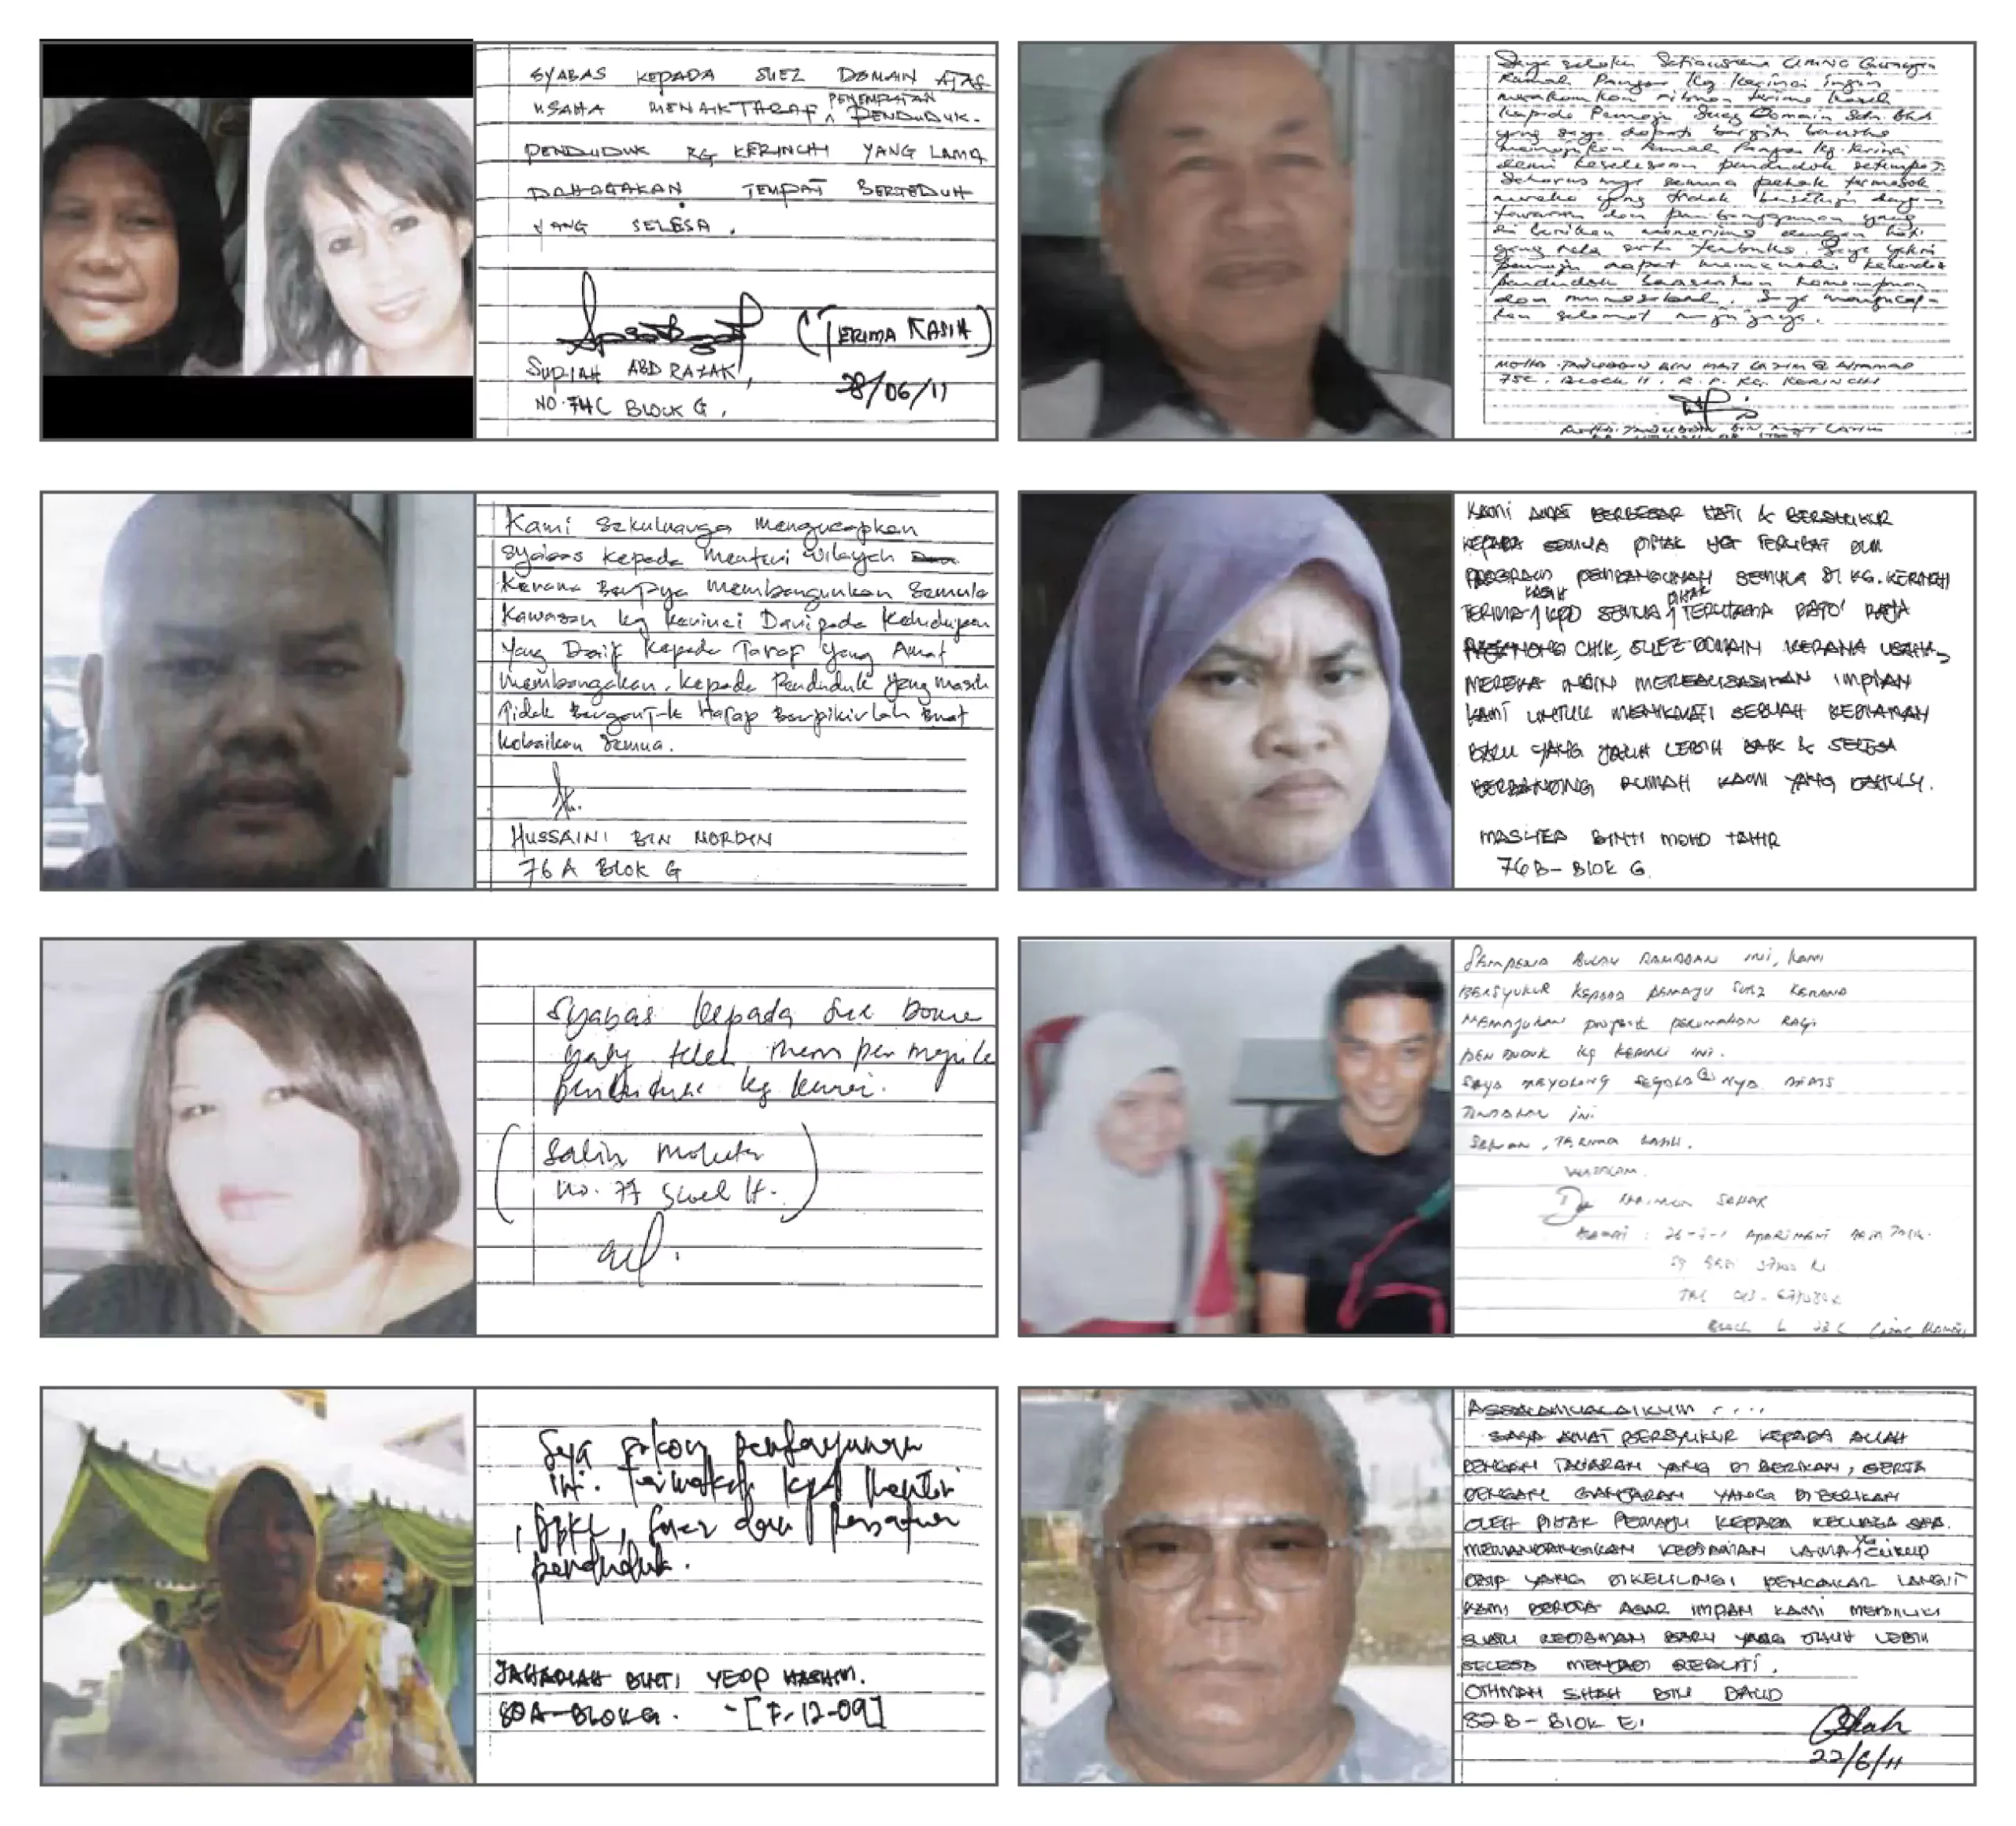 SYABAS KEPADA SUEZ DOMAIN ATAS
USAHA MENAIKTARAF PENEMPATAN PENDUDUK.
PENDUDUK KG KERINCHI YANG LAMA
DAHAGAKAN TEMPAT BERTEDUH
YANG SELESA.
(TERIMA KASIH)
SUPIAH ABD RAZAK,
28/06/11
NO. 74C BLOCK G,
Saya selaku Setiausaha UMNO Cawangan
Rumah Pangsa Kg Kerinci ingin
merakamkan ribuan terima kasih
kepada Pemaju Suez Domain Sdn. Bhd
yang saya dapati begitu berusaha
memajukan Rumah Pangsa Kg. Kerinci
demi keselesaan penduduk setempat.
Seharusnya semua pehak termasuk
mereka yang tidak bersetuju dengan
tawaran dan pembangunan yang
di berikan menerima dengan hati
yang rela serta terbuka. Saya yakin
pemaju dapat memenuhi kehendak
penduduk
dan. Saya mengucap-
kan selamat maju jaya.
MOHD. TAJUDDIN BIN MAT LAZIM @ AHAMAD
75C, BLOCK H, R.P. KG. KERINCHI
MOHD. TAJUDDIN BIN MAT LAZIM
Kami Sekuluarga Mengucapkan
Syabas Kepada Menteri Wilayah
Kerana Berjaya Membangunkan Semula
Kawasan kg Kerinci Daripada Kehidupan
Yang Daif Kepada Taraf Yang Amat
Membangakan. Kepada Penduduk Yang masih
Tidak Berganjak Harap Berpikirlah Buat
Kebaikan Semua.
HUSSAINI BIN NORDIN
76 A BLOK G
KAMI AMAT BERBESAR HATI & BERSYUKUR
KEPADA SEMUA PIHAK YG TERLIBAT DLM
PROGRAM PEMBANGUNAN SEMULA DI KG. KERINCHI
TERIMA KASIH KPD SEMUA PIHAK TERUTAMA DATO' RAJA
NONG CHIK, SUEZ DOMAIN KERANA USAHA
MEREKA INGIN MEREALISASIKAN IMPIAN
KAMI UNTUK MENIKMATI SEBUAH KEDIAMAN
BARU YANG JAUH LEBIH BAIK & SELESA
BERBANDING RUMAH KAMI YANG DAHULU.
BINTI MOHD TAHIR
76B- BLOK G.
Syabas kepada
yang telah
penduduk kg kerinci.
(Salin
no. 77
SEMPENA BULAN RAMADAN INI, KAMI
BERSYUKUR KEPADA PEMAJU SUEZ KERANA
MEMAJUKAN PROJEK PERUMAHAN BAGI
PENDUDUK KG KERINCI INI.
SAYA MENYOKONG SEGALANYA ATAS
TINDAKAN INI.
SEKIAN, TERIMA KASIH.
WASALAM.
Saya sokong
ini. Terimakasih kpd Menteri
, DBKL, Suez dan Persatuan
penduduk.
BINTI YEOP HASHIM.
80A-BLOK G. -[F-12-09]
ASSALAMUALAIKUM ....
SAYA AMAT BERSYUKUR KEPADA ALLAH
DENGAN TAWARAN YANG DI BERIKAN, SERTA
DENGAN GANJARAN YANG DIBERIKAN
OLEH PIHAK PEMAJU KEPADA KELUARGA SAYA.
MEMANDANGKAN KEDIAMAN LAMA YG CUKUP
DAIF YANG DIKELILINGI PENCAKAR LANGIT
KAMI BERDOA AGAR IMPIAN KAMI MEMILIKI
SUATU KEDIAMAN BARU YANG JAUH LEBIH
SELESA MENJADI REALITI.
OTHMAN SHAH BIN DAUD
82B- BLOK E.
22/6/11